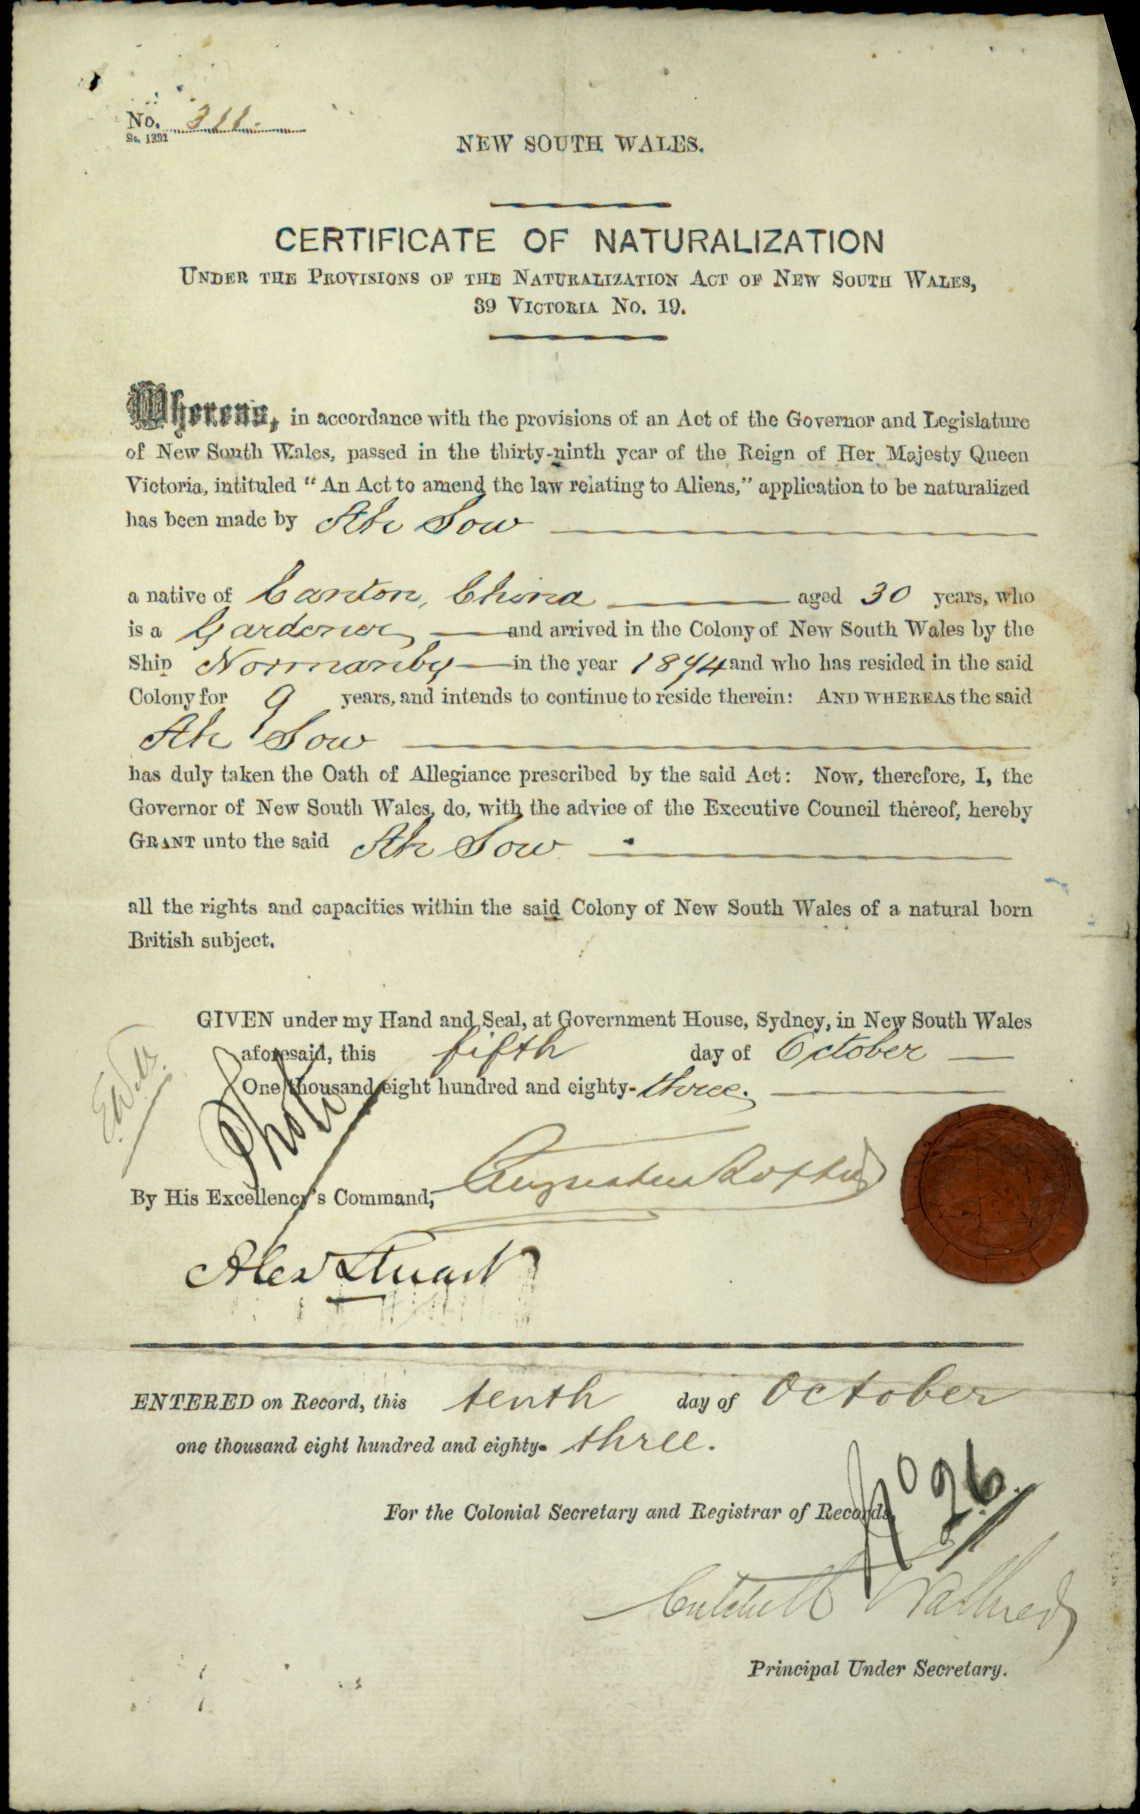 No. 311.
Sc. 1291
NEW SOUTH WALES.
CERTIFICATE OF NATURALIZATION
UNDER THE PROVISIONS OF THE NATURALIZATION ACT OF NEW SOUTH WALES,
39 VICTORIA No. 19.
Whereas, in accordance with the provisions of an Act of the Governor and Legislature
of New South Wales, passed in the thirty-ninth year of the Reign of Her Majesty Queen
Victoria, intituled "An Act to amend the law relating to Aliens," application to be naturalized
has been made by Ah Sow
a native of Canton, China aged 30 years, who
is a Gardener and arrived in the Colony of New South Wales by the
Ship Normanby in the year 1874 and who has resided in the said
Colony for 9 years, and intends to continue to reside therein: AND WHEREAS the said
Ah Sow
has duly taken the Oath of Allegiance prescribed by the said Act: Now, therefore, I, the
Governor of New South Wales, do, with the advice of the Executive Council thereof, hereby
GRANT unto the said Ah Sow
all the rights and capacities within the said Colony of New South Wales of a natural born
British subject.
GIVEN under my Hand and Seal, at Government House, Sydney, in New South Wales
aforesaid, this fifth day of October
One thousand eight hundred and eighty-three.
Photo
Augustus Loftus
By His Excellency's Command,
Alex Stuart
ENTERED on Record, this tenth day of October
one thousand eight hundred and eighty-three.
No 96
For the Colonial Secretary and Registrar of Records,
Critchett Walker
Principal Under Secretary.